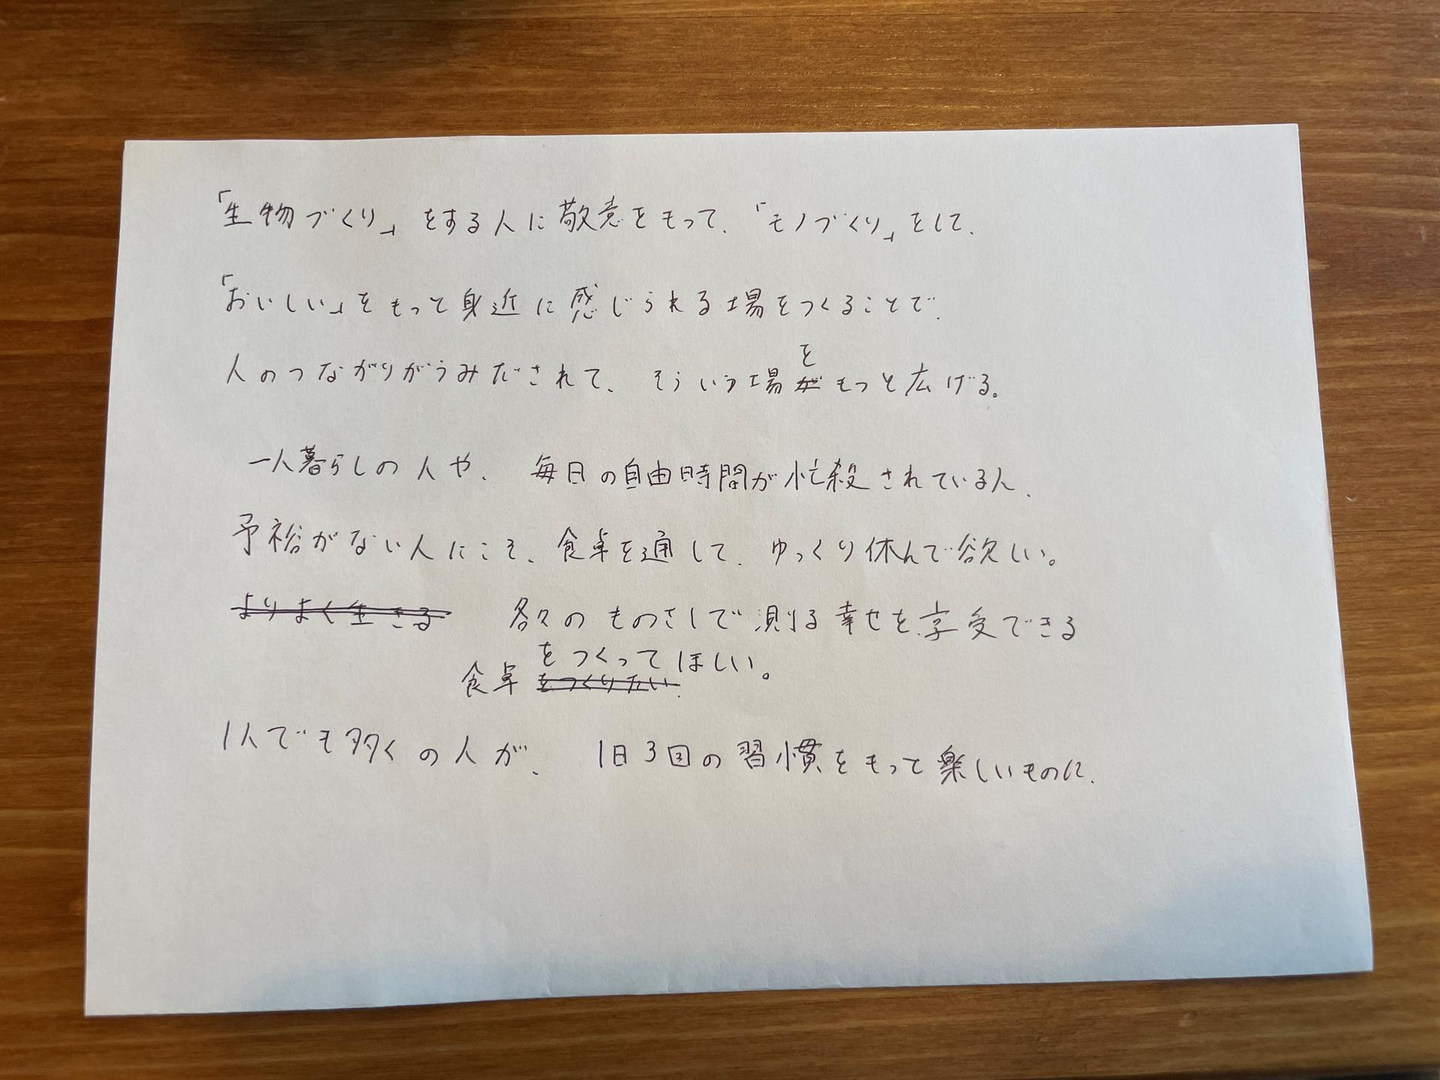 「生物づくり」をする人に敬意をもって、「モノづくり」をして、
「おいしい」をもっと身近に感じられる場をつくることで、
人のつながりがうみだされて、そういう場をもっと広げる。
一人暮らしの人や、毎日の自由時間が忙殺されている人、
予裕がない人にこそ、食卓を通して、ゆっくり休んで欲しい。
よりよく生きる 各々のものさしで測る幸せを享受できる
をつくってほしい。
食卓 をつくりたい。
1人でも多くの人が、1日3回の習慣をもっと楽しいものに、